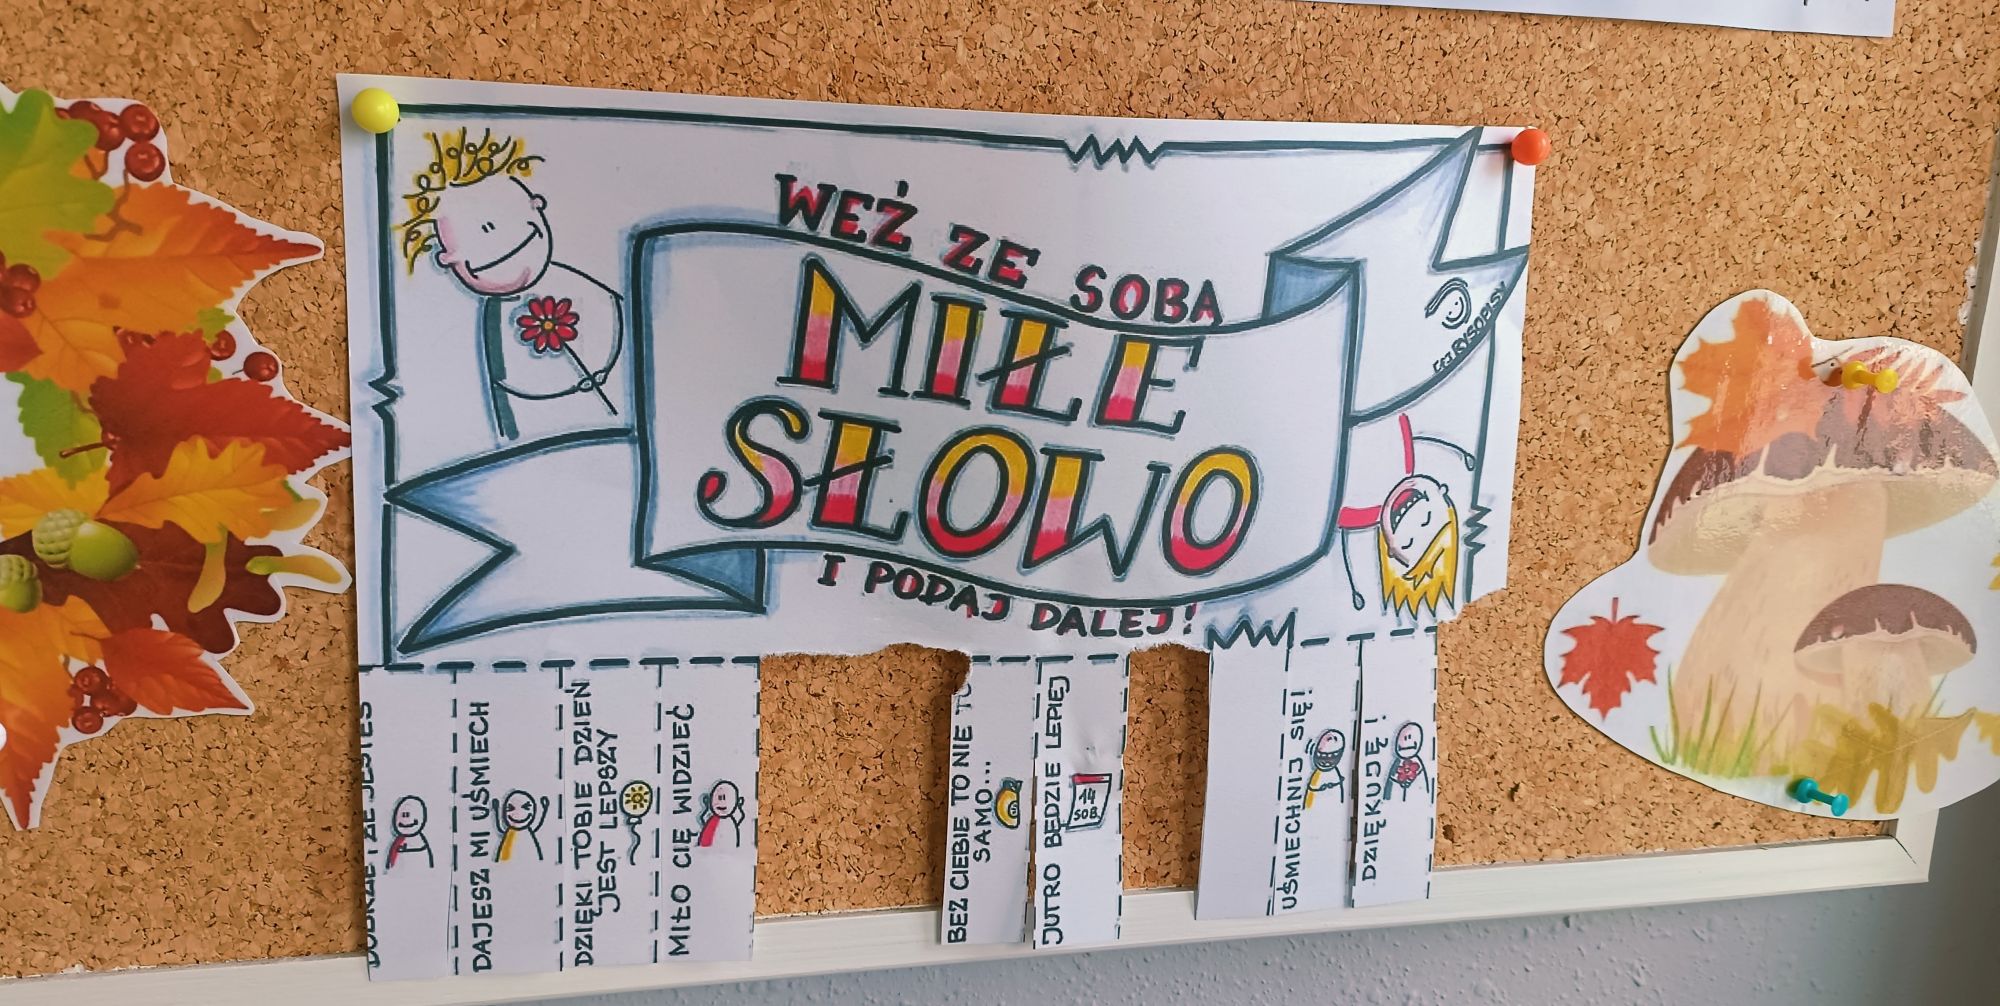 WEŻ ZE SOBA
MIŁE
SŁOWO
I PODAJ DALEJ!
DAJESZ MI UŚMIECH
DZIĘKI TOBIE DZIEŃ
JEST LEPSZY
MIŁO CIĘ WIDZIEĆ
BEZ CIEBIE TO NIE
SAMO...
JUTRO BĘDZIE LEPIEJ
14
SOB.
UŚMIECHNIJ SIĘ!
DZIĘKUJĘ!